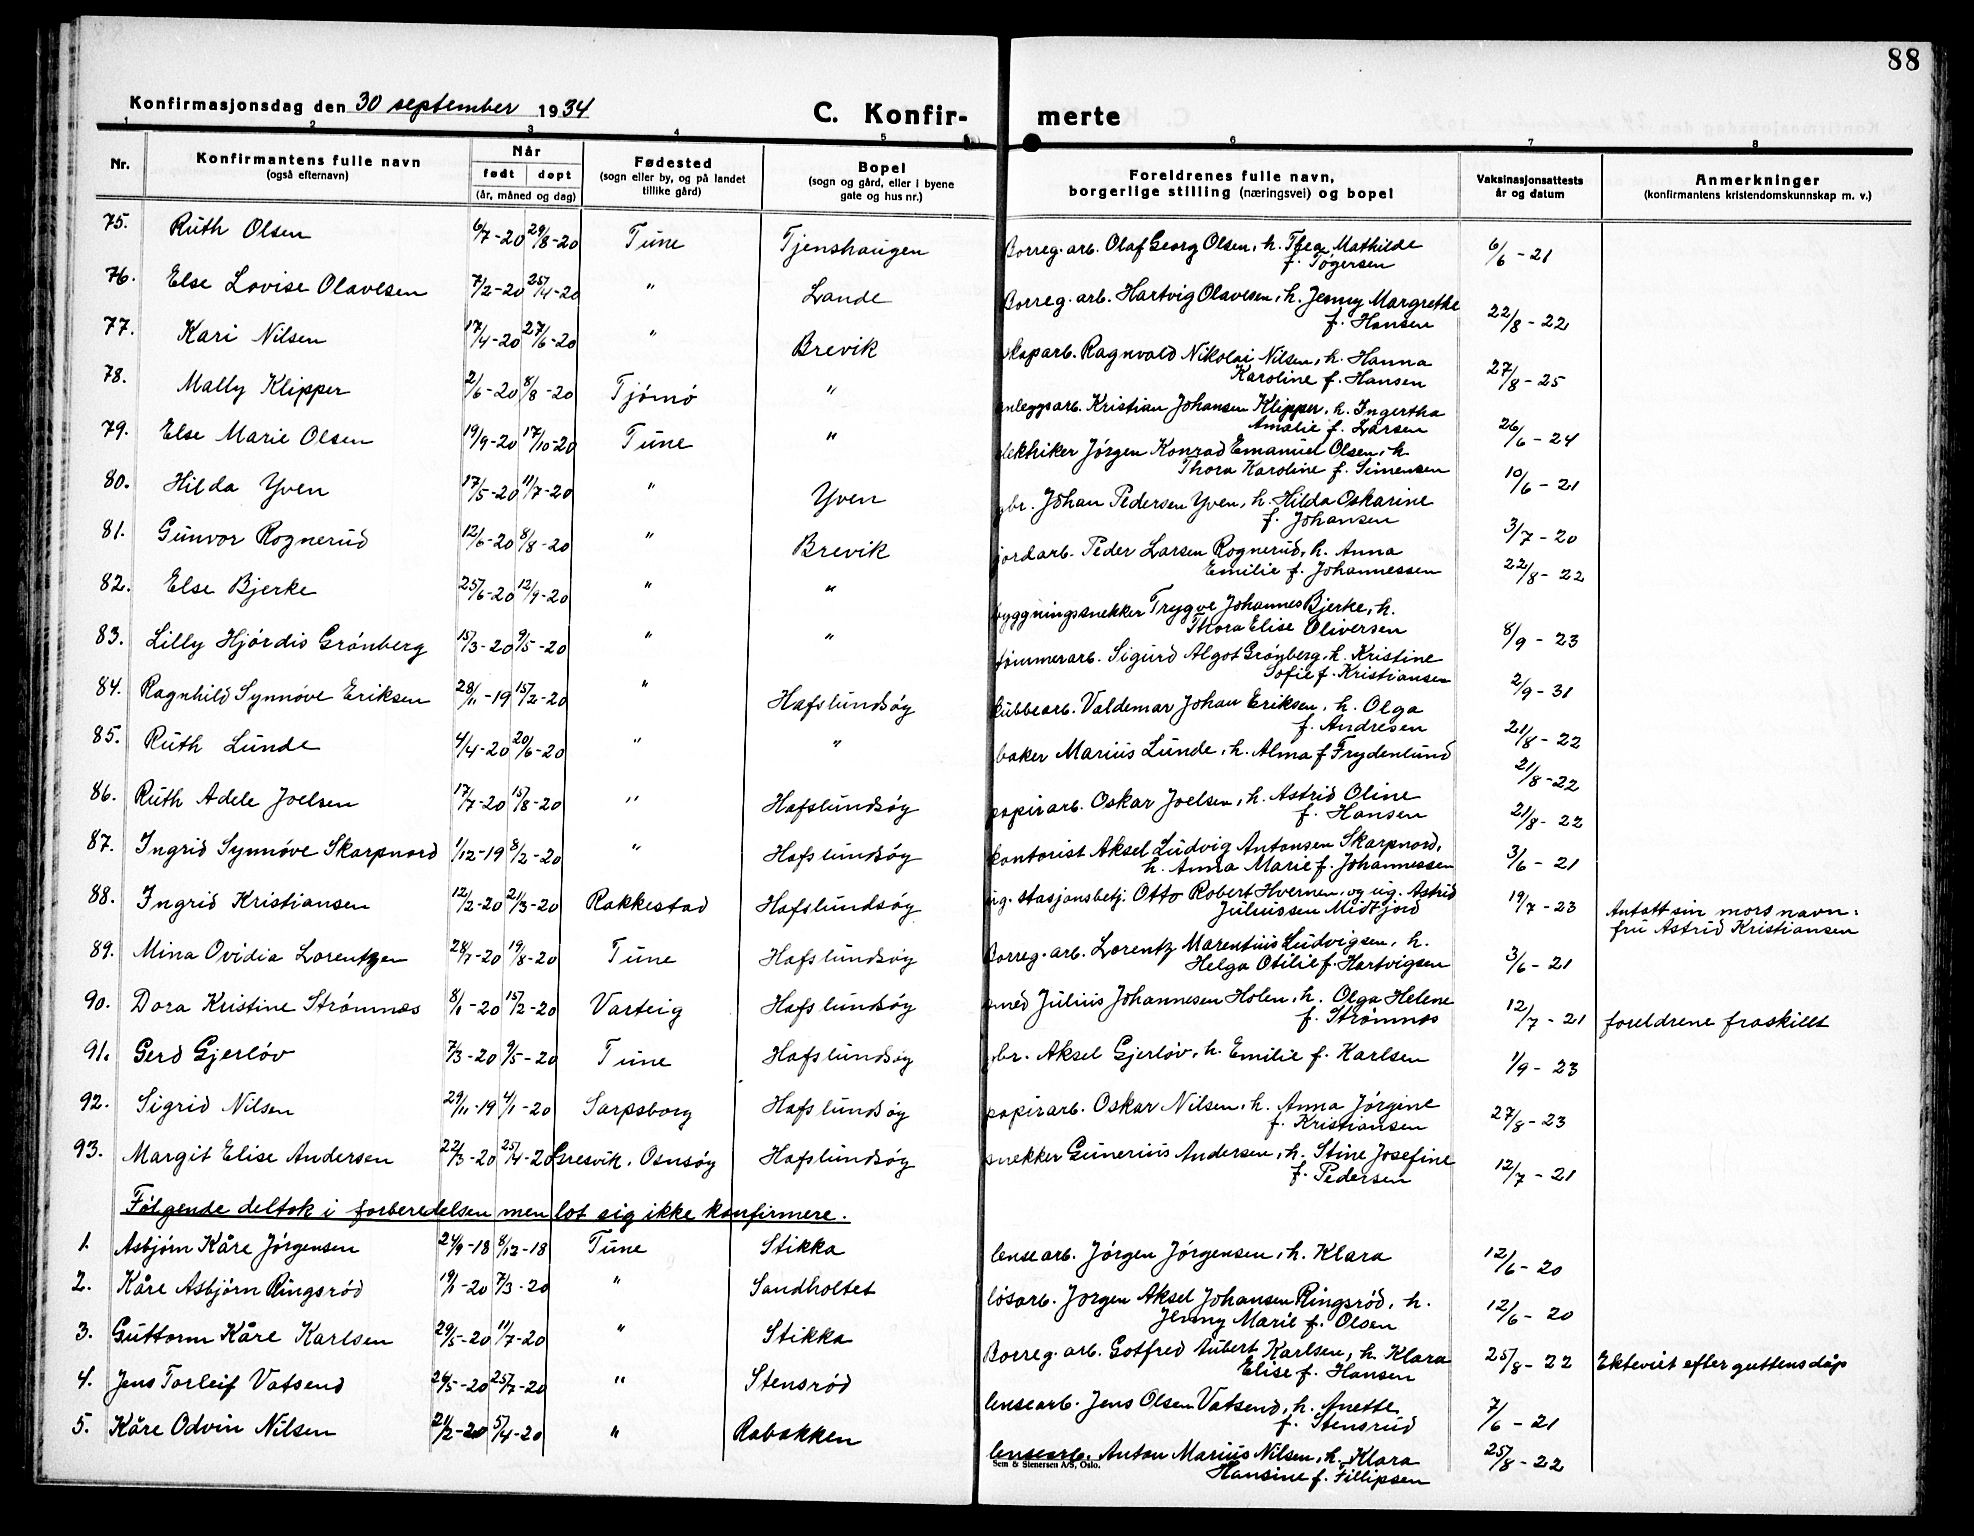 88
Konfirmasjonsdag den 30 september 1934
C. Konfir- merte
1 2 3 4 5 6 7 8
Nr. Konfirmantens fulle navn (også efternavn) Når født døpt (år, måned og dag) Fødested (sogn eller by, og på landet tillike gård) Bopel (sogn og gård, eller i byene gate og hus nr.) Foreldrenes fulle navn, borgerlige stilling (næringsvei) og bopel Vaksinasjonsattests år og datum Anmerkninger (konfirmantens kristendomskunnskap m. v.)
75. Ruth Olsen 6/7-20 29/8-20 Tune Tjenshaugen Borreg. arb. Olaf Georg Olsen, h. Thea Mathilde 6/6-21
f. Tøgersen
76. Else Lovise Olavesen 7/2-20 25/4-20 " Lande Borreg. arb. Hartvig Olavesen, h. Jenny Margrethe 22/8-22
f. Hansen
77. Kari Nilsen 17/4-20 27/6-20 " Brevik skoparb. Ragnvald Nikolai Nilsen, h. Hanna 27/8-25
Karoline f. Hansen
78. Mally Klipper 2/6-20 8/8-20 Tjømø " anleggsarb. Kristian Johansen Klipper, h. Ingertha 26/6-24
Amalie f. Larsen
79. Else Marie Olsen 19/9-20 17/10-20 Tune " Jørgen Konrad Emanuel Olsen, h. 10/6-21
Thora Karoline f. Simensen
80. Hilda Yven 17/5-20 11/7-20 " Yven gbr. Johan Pedersen Yven, h. Hilda Oskarine 3/7-20
f. Johansen
81. Gunvor Rognerud 12/6-20 8/8-20 " Brevik jordarb. Peder Larsen Rognerud, h. Anna 22/8-22
Emilie f. Johannessen
82. Else Bjerke 25/6-20 12/9-20 " " byggningssnekker Trygve Johannes Bjerke, h. 8/9-23
Thora Elise Oliversen
83. Lilly Hjørdis Grønberg 15/3-20 9/5-20 " " tømmerarb. Sigurd Algot Grønberg, h. Kristine 2/9-31
Sofie f. Kristiansen
84. Ragnhild Synnøve Eriksen 28/11-19 15/2-20 " Hafslundsøy kubbearb. Valdemar Johan Eriksen, h. Olga 21/8-22
f. Andresen
85. Ruth Lunde 4/4-20 20/6-20 " " baker Marius Lunde, h. Alma f. Frydenlund 21/8-22
86. Ruth Adele Joelsen 17/7-20 15/8-20 " Hafslundsøy papirarb. Oskar Joelsen, h. Astrid Oline 21/8-22
f. Hansen
87. Ingrid Synnøve Skarpnord 1/12-19 8/2-20 " Hafslundsøy kontorist Aksel Ludvig Antonsen Skarpnord, 3/6-21
h. Anna Marie f. Johannessen
88. Ingrid Kristiansen 12/2-20 21/3-20 Rakkestad Hafslundsøy ug. stasjonsbetj. Otto Robert Hvernen, og ug. Astrid 19/7-23 Antatt sin mors navn:
Juliussen Midtfjord fru Astrid Kristiansen
89. Mina Ovidia Lorentzen 28/7-20 19/8-20 Tune Hafslundsøy Borreg. arb. Lorentz Marentius Ludvigsen, h. 3/6-21
Helga Otilie f. Hartvigsen
90. Dora Kristine Strømnæs 8/1-20 15/2-20 Varteig Hafslundsøy smed Julius Johannesen Holen, h. Olga Helene 12/7-21 foreldrene fraskillt
f. Strømnæs
91. Gerd Gjerløv 7/3-20 9/5-20 Tune Hafslundsøy gbr. Aksel Gjerløv, h. Emilie f. Karlsen 1/9-23
92. Sigrid Nilsen 29/11-19 4/1-20 Sarpsborg Hafslundsøy papirarb. Oskar Nilsen, h. Anna Jørgine 27/8-23
f. Kristiansen
93. Margit Elise Andersen 22/3-20 25/4-20 Gresvik, Onsøy Hafslundsøy snekker Gunerius Andersen, h. Stine Josefine 12/7-21
f. Pedersen
Følgende deltok i forberedelsen men lot sig ikke konfirmere.
1. Asbjørn Kåre Jørgensen 24/9-18 8/12-18 Tune Stikka lensearb. Jørgen Jørgensen, h. Klara 12/6-20
2. Kåre Asbjørn Ringsrød 19/1-20 7/3-20 " Sandholtet løsarb. Jørgen Aksel Johansen Ringsrød, h. 12/6-20
Jenny Marie f. Olsen
3. Guttorm Kåre Karlsen 29/5-20 11/7-20 " Stikka Borreg. arb. Gotfred Hubert Karlsen, h. Klara 25/8-22 Ekteviet efter guttens dåp
Elise f. Hansen
4. Jens Torleif Vatsend 26/5-20 25/7-20 " Stensrød lensearb. Jens Olsen Vatsend, h. Anette 7/6-21
f. Stensrud
5. Kåre Odvin Nilsen 21/2-20 5/4-20 " Rabakken lensearb. Anton Marius Nilsen, h. Klara 25/8-22
Hansine f. Fillipsen
Sem & Stenersen A/S, Oslo.